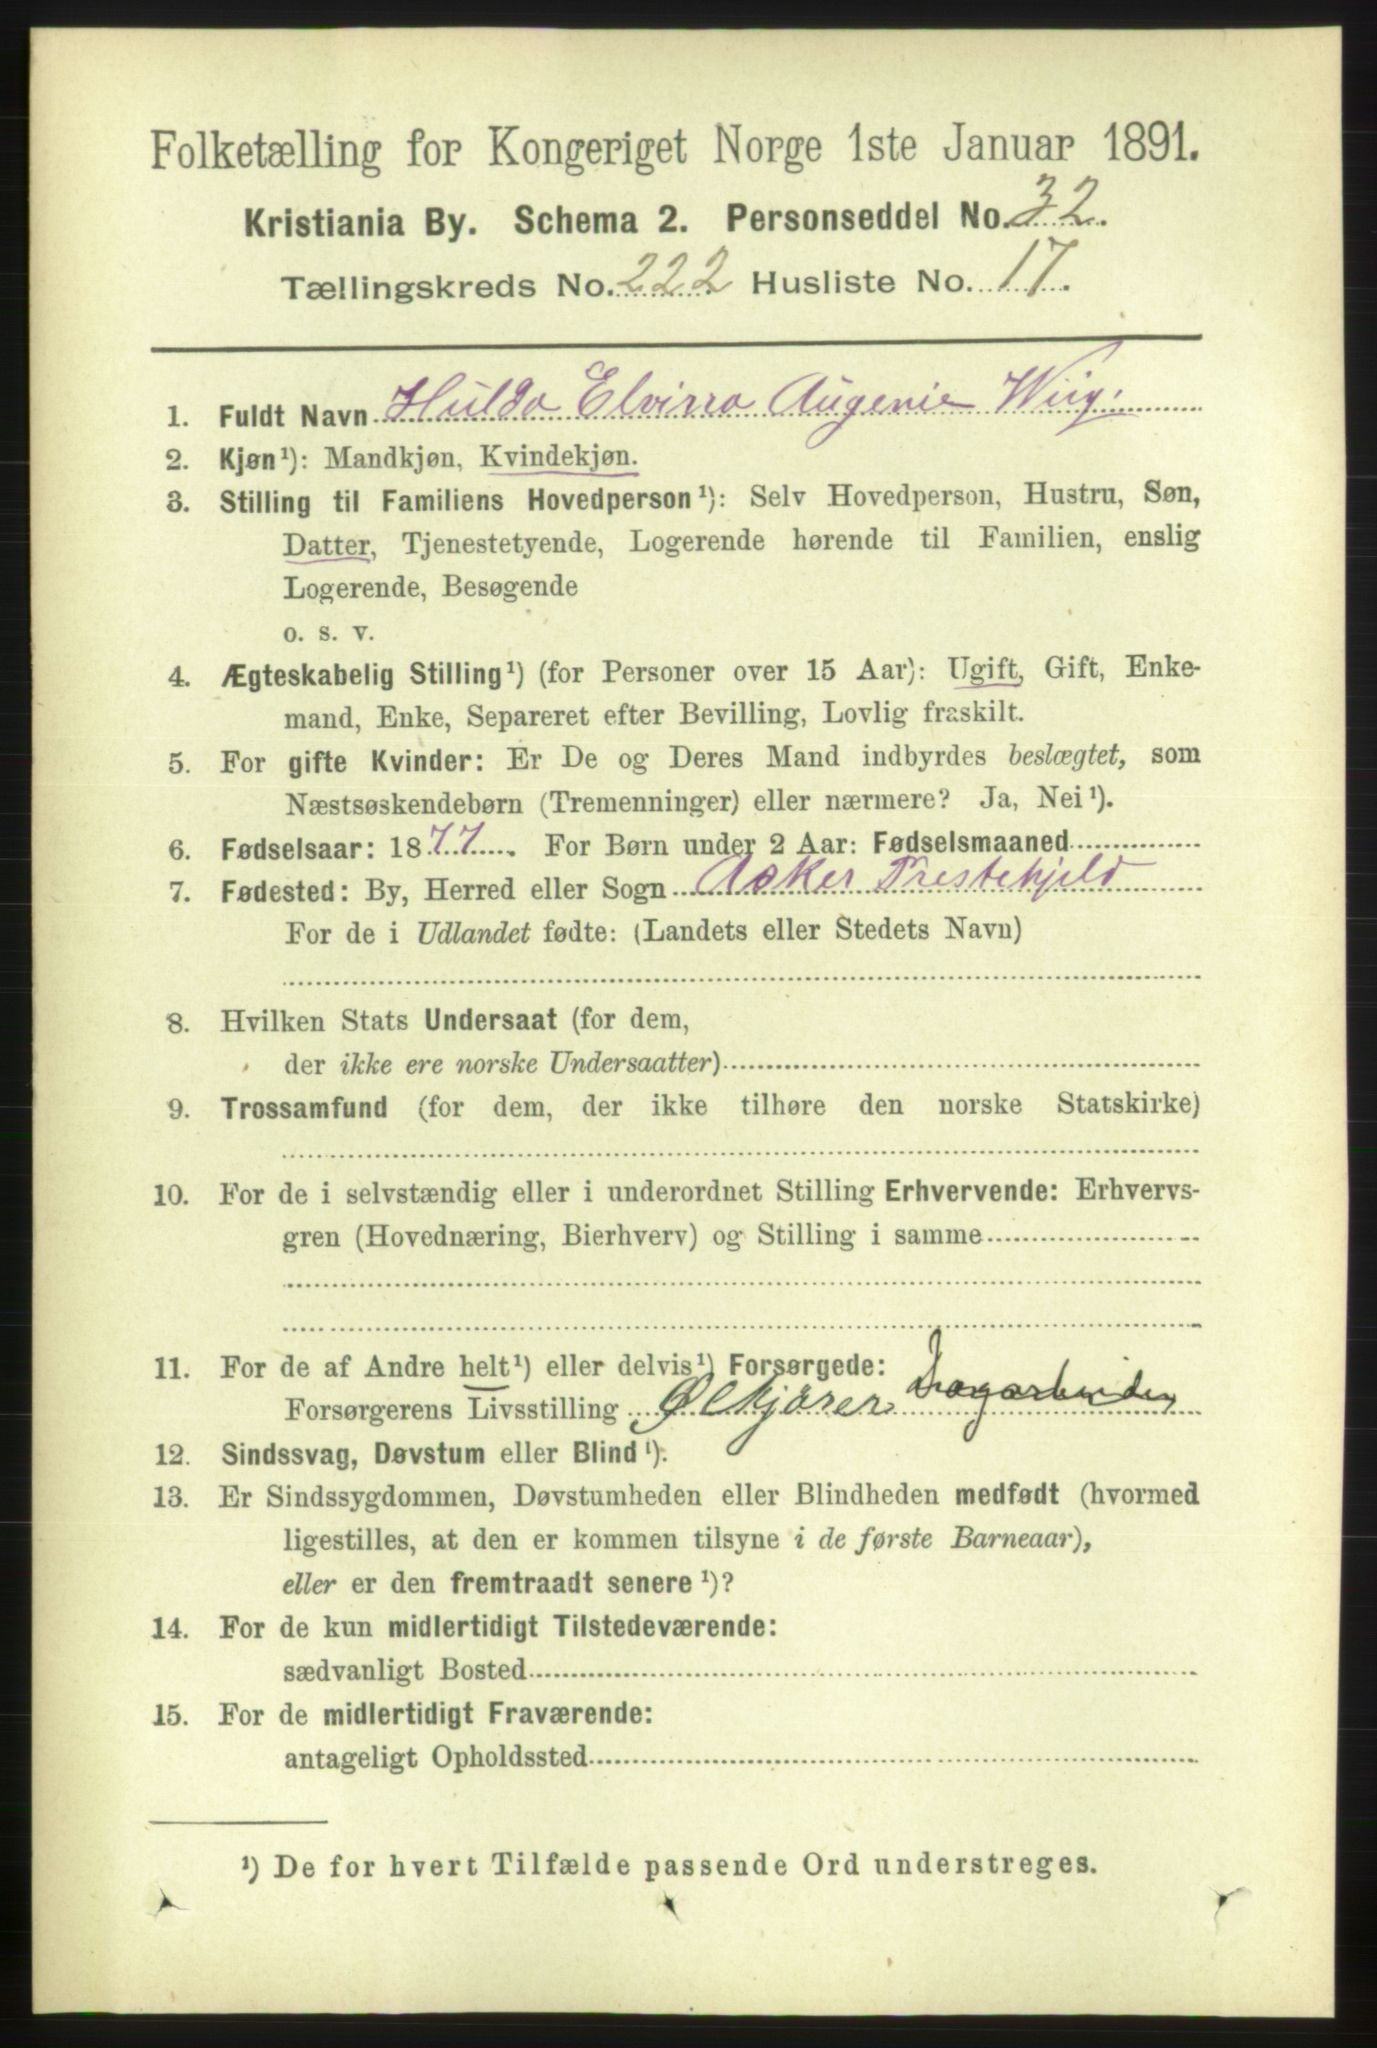 Folketælling for Kongeriget Norge 1ste Januar 1891.
Kristiania By. Schema 2. Personseddel No. 32.
Tællingskreds No. 222 Husliste No. 17.
1. Fuldt Navn Hulda Elvirra Augenie Wiig.
2. Kjøn¹): Mandkjøn, Kvindekjøn.
3. Stilling til Familiens Hovedperson¹): Selv Hovedperson, Hustru, Søn,
Datter, Tjenestetyende, Logerende hørende til Familien, enslig
Logerende, Besøgende
o. s. v.
4. Ægteskabelig Stilling¹) (for Personer over 15 Aar): Ugift, Gift, Enke-
mand, Enke, Separeret efter Bevilling, Lovlig fraskilt.
5. For gifte Kvinder: Er De og Deres Mand indbyrdes beslægtet, som
Næstsøskendebørn (Tremenninger) eller nærmere? Ja, Nei¹).
6. Fødselsaar: 1877. For Børn under 2 Aar: Fødselsmaaned
7. Fødested: By, Herred eller Sogn Asker Prestehjeld
For de i Udlandet fødte: (Landets eller Stedets Navn)
8. Hvilken Stats Undersaat (for dem,
der ikke ere norske Undersaatter)
9. Trossamfund (for dem, der ikke tilhøre den norske Statskirke)
10. For de i selvstændig eller i underordnet Stilling Erhvervende: Erhvervs-
gren (Hovednæring, Bierhverv) og Stilling i samme
11. For de af Andre helt¹) eller delvis¹) Forsørgede:
Forsørgerens Livsstilling Ølkjører
12. Sindssvag, Døvstum eller Blind¹).
13. Er Sindssygdommen, Døvstumheden eller Blindheden medfødt (hvormed
ligestilles, at den er kommen tilsyne i de første Barneaar),
eller er den fremtraadt senere¹)?
14. For de kun midlertidigt Tilstedeværende:
sædvanligt Bosted
15. For de midlertidigt Fraværende:
antageligt Opholdssted
¹) De for hvert Tilfælde passende Ord understreges.